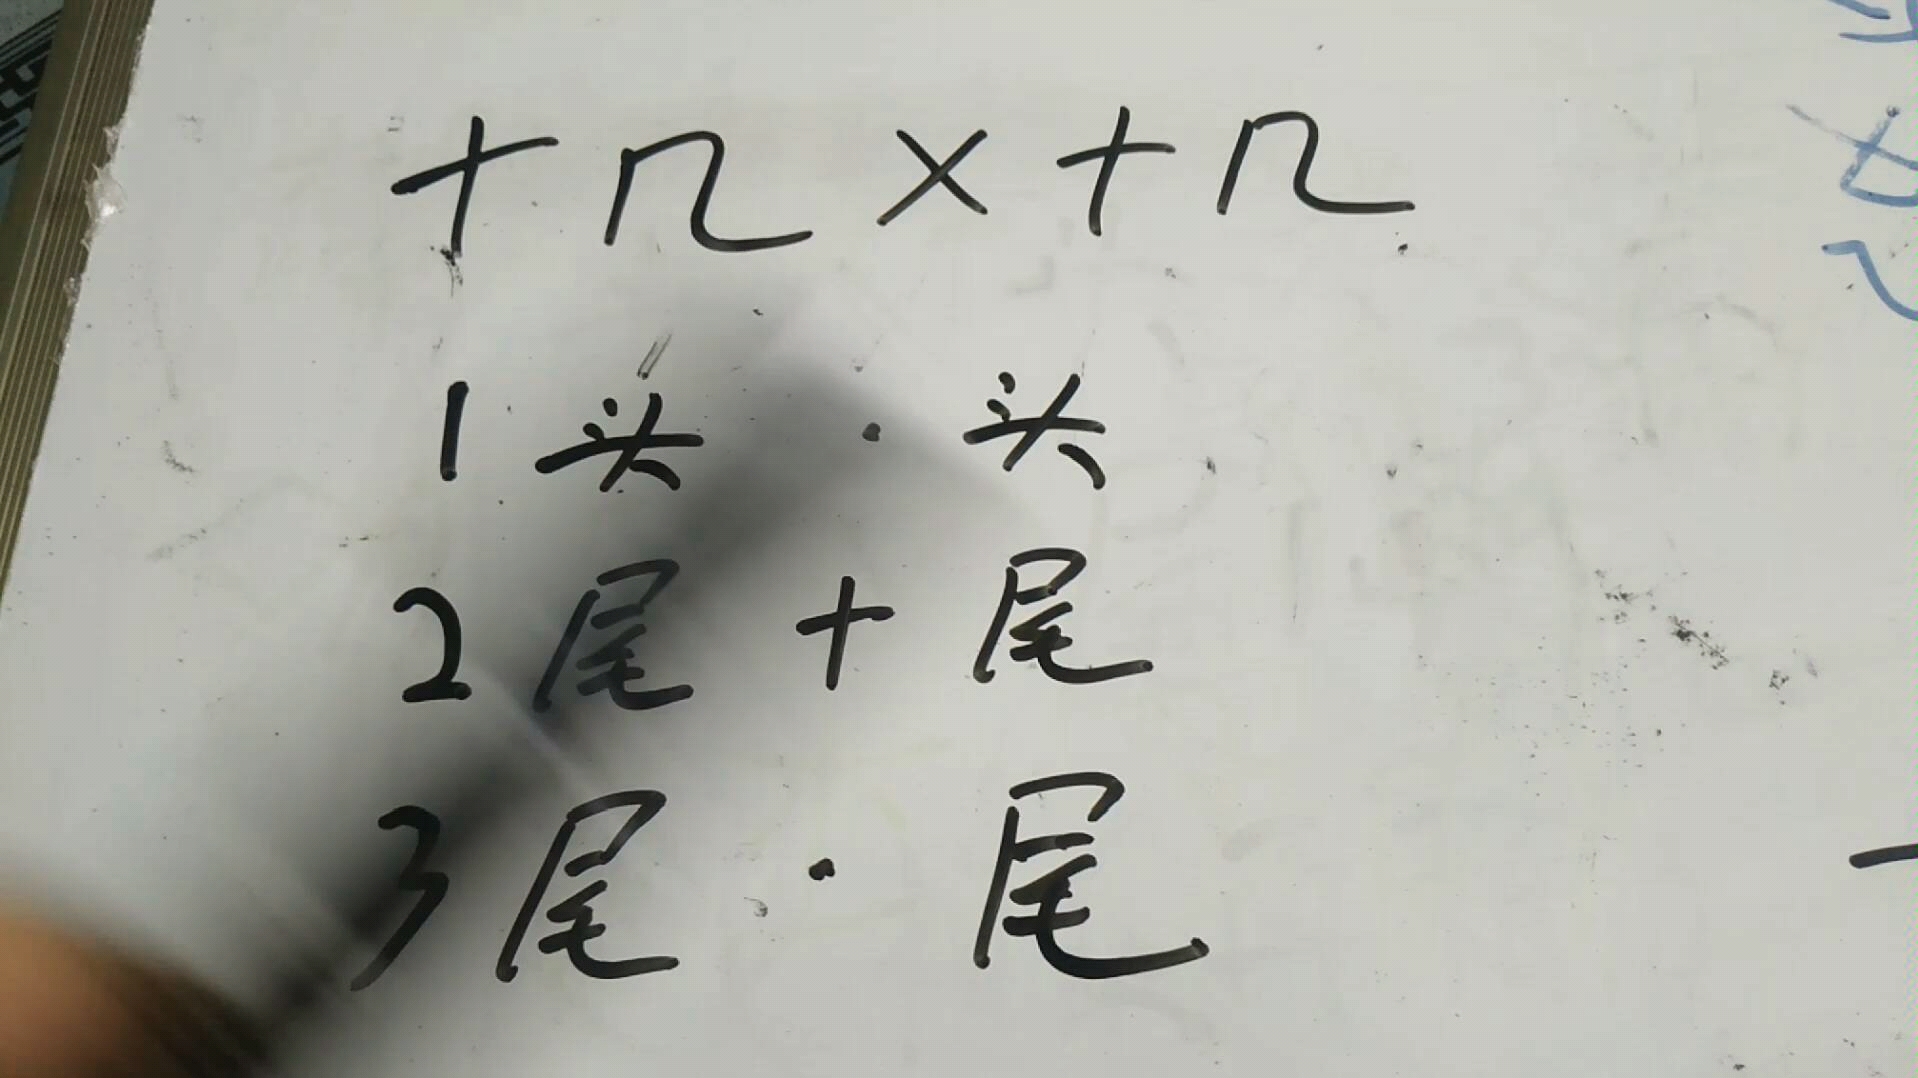 十几×十几
1 头·头
2 尾+尾
3 尾·尾